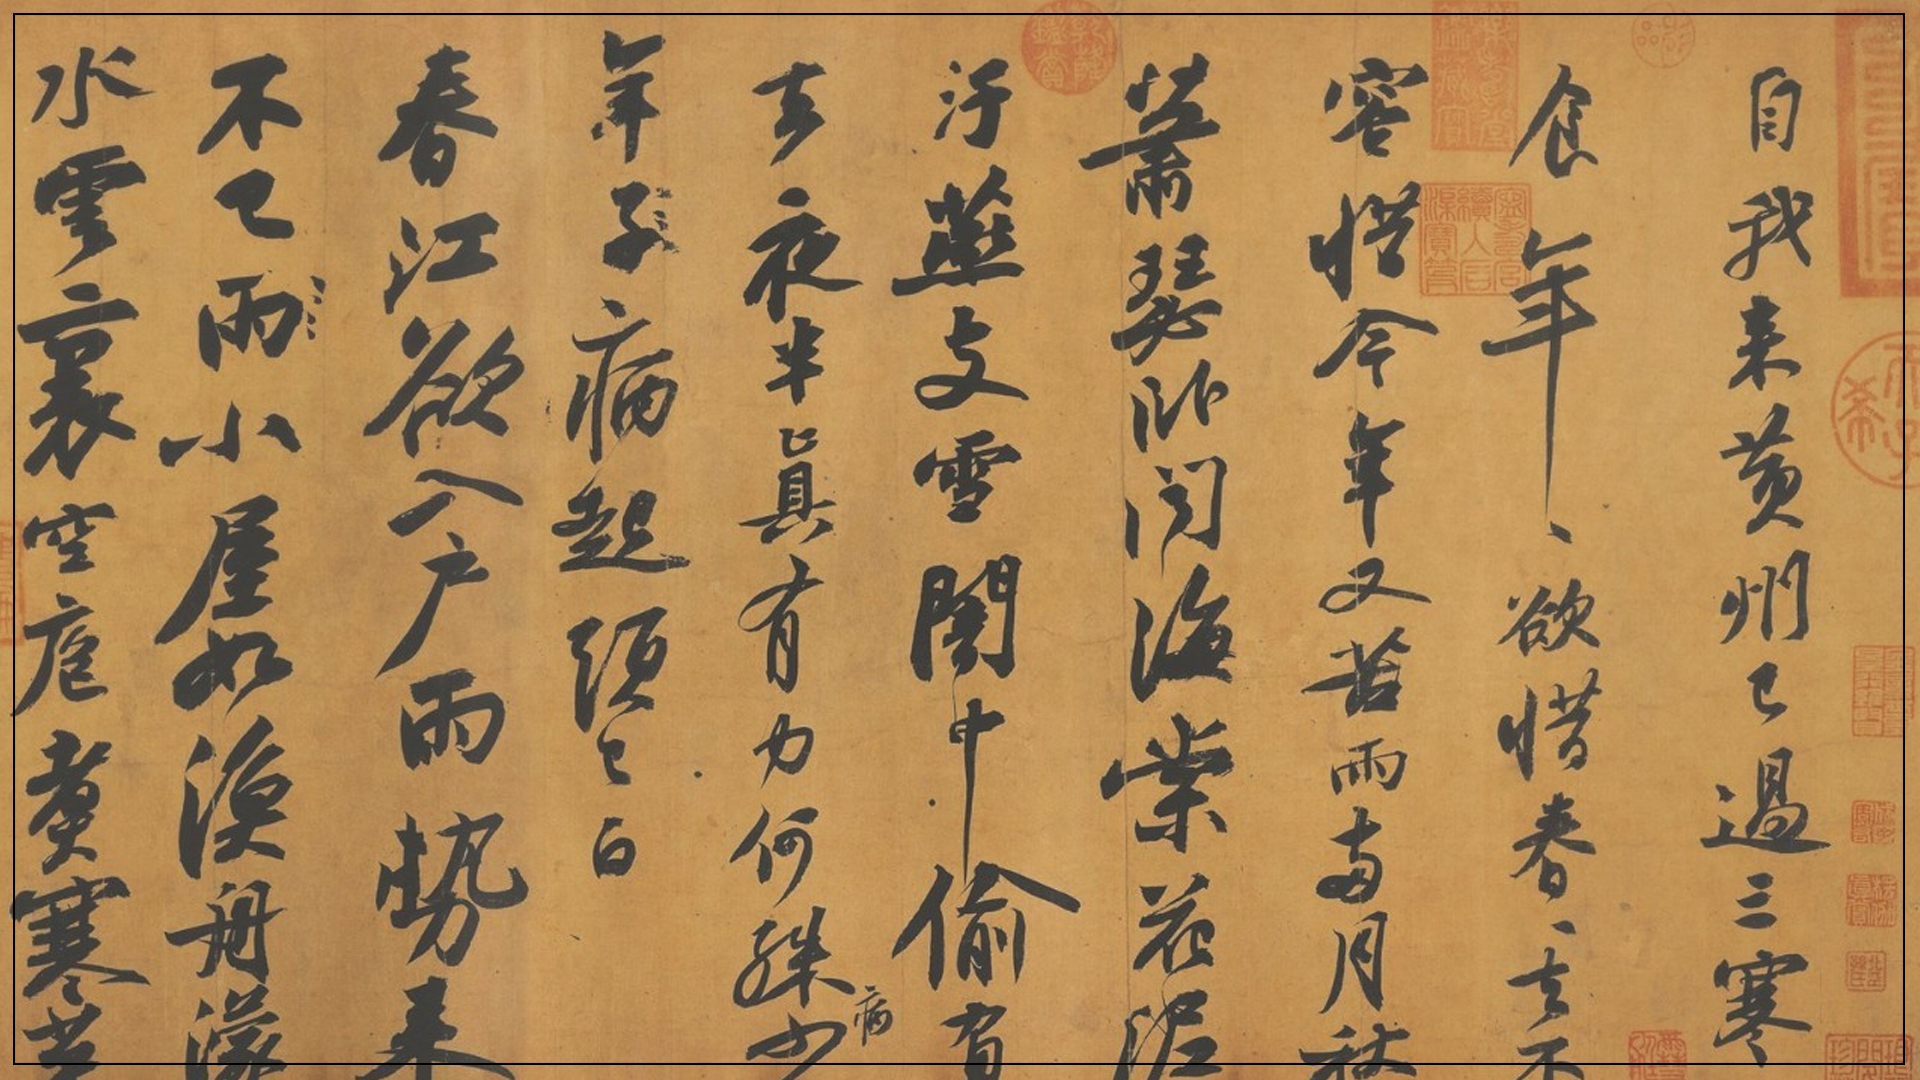 自我来黄州已過三寒
食年、欲惜春、去不
容惜今年又苦雨兩月秋
蕭瑟卧聞海棠花泥
汙燕支雪闇中偷有
去夜半真有力何殊少
病
年子病起頭已白
春江欲入户雨勢来
不已雨小屋如漁舟濛
水雲裏空庖煮寒菜